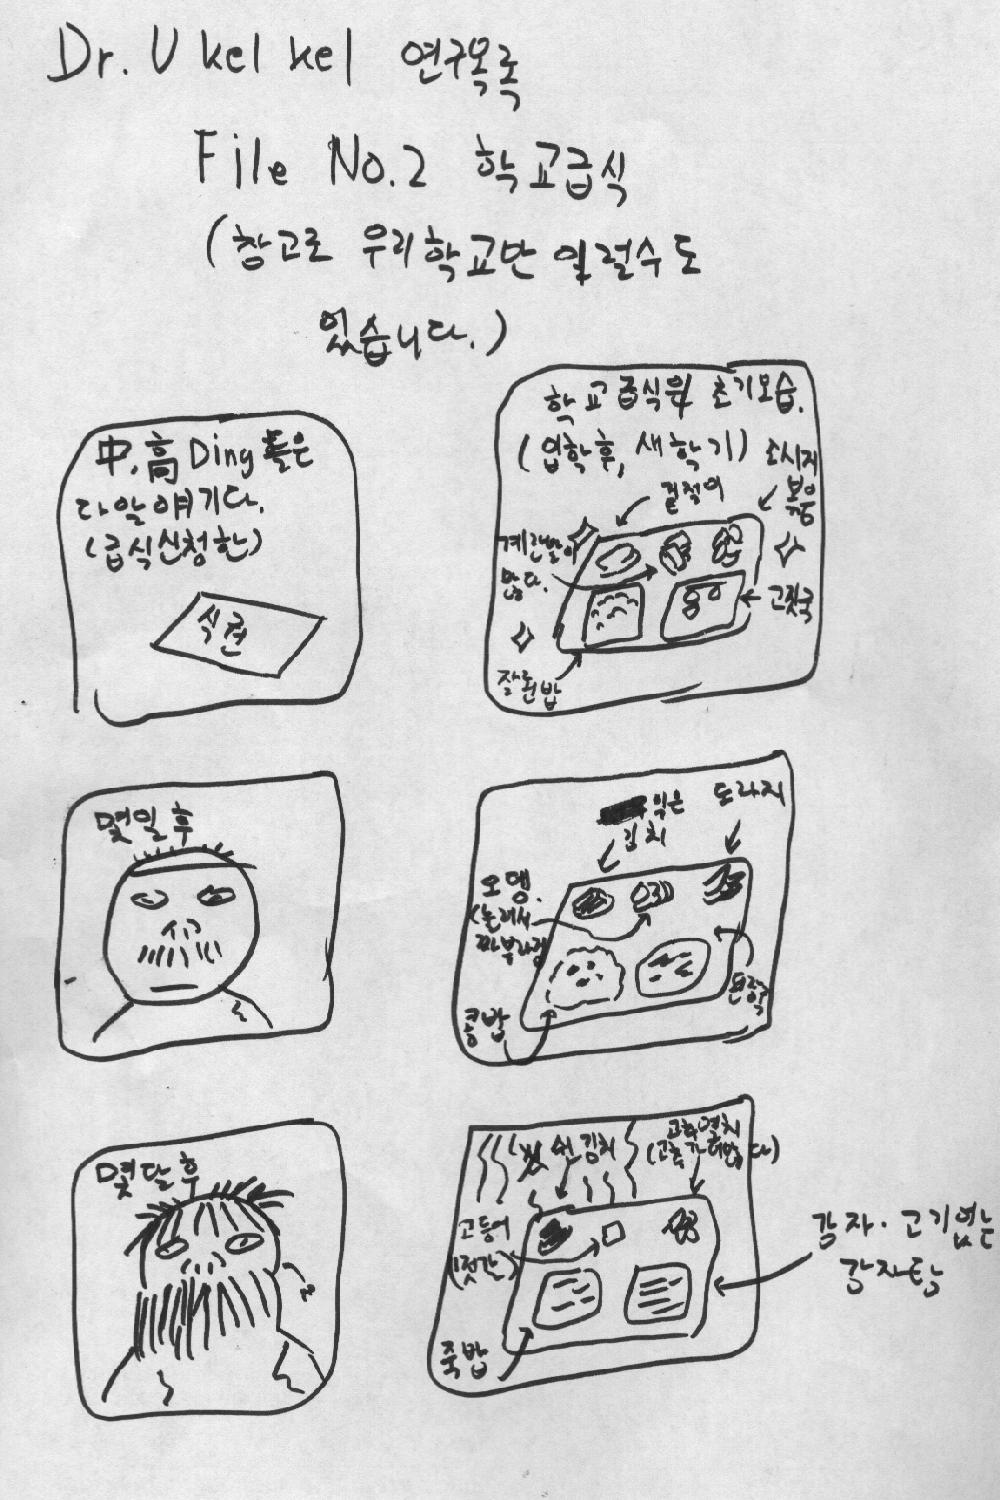 Dr. U kel kel 연구목록
File No.2 학교급식
(참고로 우리학교만 일럴수도
있습니다.)
中, 高 Ding 들은
다 알 얘기다.
(급식신청한)
식권
학교급식의 초기모습.
(입학후, 새학기)
소시지
볶음
겉절이
계란말이
많다.
고깃국
잘된밥
몇일 후
익은
김치
도라지
오뎅.
(눌려서
짜부라짐
콩밥
몇달 후
쉰김치
고추멸치
고등어
(젓갈)
죽밥
감자·고기없는
감자탕